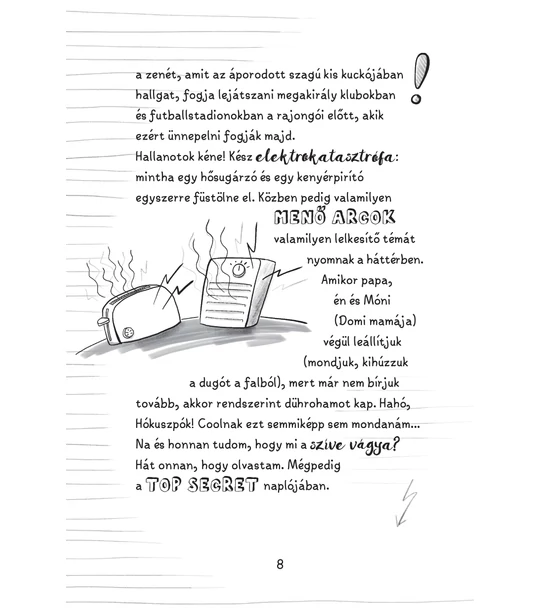 a zenét, amit az áporodott szagú kis kuckójában
hallgat, fogja lejátszani megakirály klubokban
és futballstadionokban a rajongói előtt, akik
ezért ünnepelni fogják majd.
Hallanotok kéne! Kész elektrokatasztrófa:
mintha egy hősugárzó és egy kenyérpirító
egyszerre füstölne el. Közben pedig valamilyen
MENŐ ARCOK
valamilyen lelkesítő témát
nyomnak a háttérben.
Amikor papa,
én és Móni
(Domi mamája)
végül leállítjuk
(mondjuk, kihúzzuk
a dugót a falból), mert már nem bírjuk
tovább, akkor rendszerint dührohamot kap. Hahó,
Hókuszpók! Coolnak ezt semmiképp sem mondanám...
Na és honnan tudom, hogy mi a szíve vágya?
Hát onnan, hogy olvastam. Mégpedig
a TOP SECRET naplójában.
8